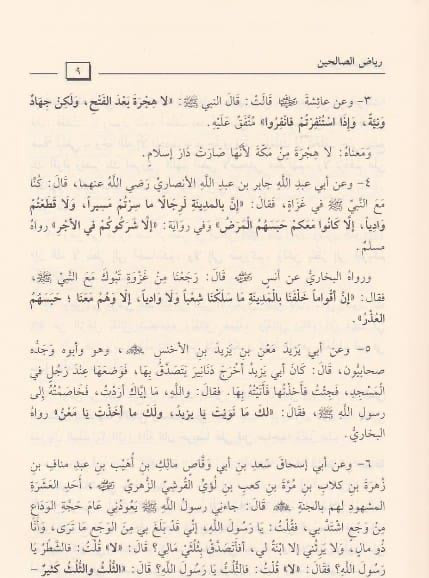 رياض الصالحين
٩
٣- وعن عائشةَ ﵂ قَالَتْ: قَالَ النبي ﷺ: «لا هِجْرَةَ بَعْدَ الفَتْحِ، وَلَكِنْ جِهَادٌ
وَنِيَّةٌ، وَإِذَا اسْتُنْفِرْتُمْ فَانْفِرُوا» مُتَّفَقٌ عَلَيْهِ.
وَمَعناهُ: لا هِجْرَةَ مِنْ مَكَّةَ لأَنَّهَا صَارَتْ دَارَ إسلامٍ.
٤- وعن أبي عبدِ اللَّهِ جابر بن عبدِ اللَّهِ الأنصاريِّ رَضِي اللَّهُ عنهما، قَالَ: كُنَّا
مَعَ النَّبِيِّ ﷺ في غَزَاةٍ، فَقالَ: «إِنَّ بالمدِينَةِ لَرِجَالًا ما سِرْتُمْ مَسِيراً، وَلَا قَطَعْتُمْ
وَادِياً، إلَّا كَانُوا مَعَكم حَبَسَهُمُ الْمَرَضُ» وَفي روايَة: «إلَّا شَرَكُوكُمْ في الأجْرِ» رواهُ
مسلمٌ.
ورواهُ البخاريُّ عن أنسٍ ﵁ قَالَ: رَجَعْنَا مِنْ غَزْوَةِ تَبُوكَ مَعَ النَّبِيِّ ﷺ،
فقال: «إنَّ أقْواماً خَلْفَنَا بالْمَدِينَةِ مَا سَلَكْنَا شِعْباً وَلَا وَادِياً، إلَّا وَهُمْ مَعَنَا ؛ حَبَسَهُمُ
العُذْرُ».
٥- وعن أبي يَزِيدَ مَعْنِ بن يَزِيدَ بنِ الأخْنسِ ﵃، وهو وأبوه وَجَدُّه
صحابيُّون، قَالَ: كَانَ أبي يَزِيدُ أخْرَجَ دَنَانِيرَ يَتَصَدَّقُ بِهَا، فَوَضَعَهَا عِنْدَ رَجُلٍ فِي
الْمَسْجِدِ، فَجِئْتُ فأَخَذْتُها فَأَتَيْتُهُ بِهَا. فقالَ: واللَّهِ، مَا إيَّاكَ أرَدْتُ، فَخَاصَمْتُهُ إِلى
رسولِ اللَّهِ ﷺ، فقَالَ: «لكَ مَا نَوَيْتَ يَا يزيدُ، ولَكَ ما أخَذْتَ يَا مَعْنُ» رواهُ
البخاريُّ.
٦- وعن أبي إسحاقَ سَعدِ بنِ أبي وَقَّاصٍ مالِكِ بن أُهَيْبِ بنِ عبدِ منافِ بنِ
زُهرَةَ بنِ كلابِ بنِ مُرَّةَ بنِ كعبِ بنِ لُؤيٍّ القُرشِيِّ الزُّهريِّ ﵁، أَحَدِ العَشَرَةِ
المشهودِ لهم بالجنةِ ﵃ قَالَ: جاءَني رسولُ اللَّهِ ﷺ يَعُودُنِي عَامَ حَجَّةِ الوَدَاعِ
مِنْ وَجَعٍ اشْتدَّ بي، فقُلْتُ: يَا رَسُولَ اللَّهِ، إنِّي قَدْ بَلَغَ بي مِنَ الوَجَعِ مَا تَرَى، وَأَنَا
ذُو مالٍ، وَلا يَرِثُني إلا ابْنةٌ لي، أفأتَصَدَّقُ بِثُلُثَيْ مَالِي؟ قَالَ: «لا» قُلْتُ: فالشَّطْرُ يَا
رَسُولَ اللَّهِ؟ فقَالَ: «لا» قُلْتُ: فالثُّلُثُ يَا رَسُولَ اللَّهِ؟ قَالَ: «الثُّلُثُ والثُّلُثُ كَثيرٌ –